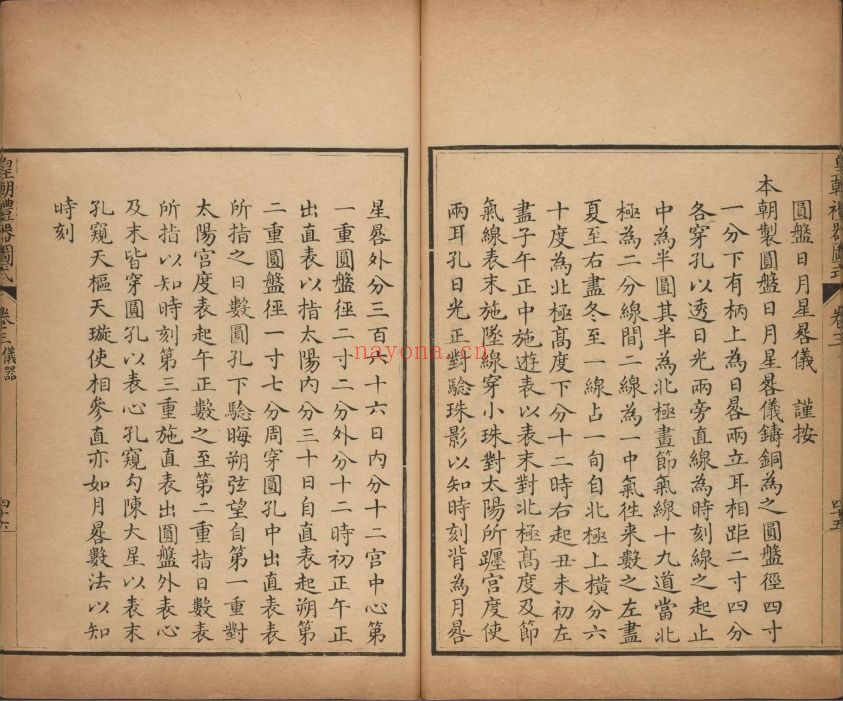 皇朝禮器圖式 卷三
四十五
圓盤日月星晷儀 謹按
本朝製圓盤日月星晷儀鑄銅為之圓盤徑四寸
一分下有柄上為日晷兩立耳相距二寸四分
各穿孔以透日光兩旁直線為時刻線之起止
中為半圓其半為北極畫節氣線十九道當北
極為二分線間二線為一中氣徃来數之左盡
夏至右盡冬至一線占一旬自北極上横分六
十度為北極髙度下分十二時右起丑未初左
盡子午正中施遊表以表末對北極髙度及節
氣線表末施墜線穿小珠對太陽所躔宫度使
兩耳孔日光正對驗珠影以知時刻背為月晷
星晷外分三百六十六日内分十二宫中心第
一重圓盤徑二寸二分外分十二時初正午正
出直表以指太陽内分三十日自直表起朔第
二重圓盤徑一寸七分周穿圓孔中出直表表
所指之日數圓孔下驗晦朔弦望自第一重對
太陽宫度表起午正數之至第二重指日數表
所指以知時刻第三重施直表出圓盤外表心
及末皆穿圓孔以表心孔窺勾陳大星以表末
孔窺天樞天璇使相參直亦如月晷數法以知
時刻
皇朝禮器圖式 卷三 儀器
四十六
nayona.cn